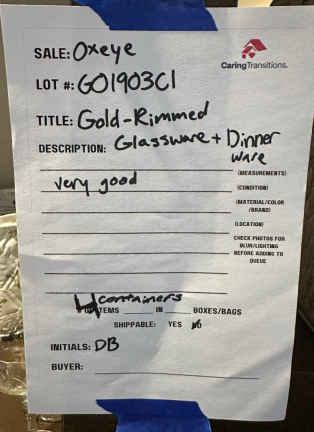 SALE: Oxeye
CaringTransitions.
LOT #: GO1903C1
TITLE: Gold-Rimmed
DESCRIPTION: Glassware + Dinner
ware
(MEASUREMENTS)
very good
(CONDITION)
(MATERIAL/COLOR
/BRAND)
(LOCATION)
CHECK PHOTOS FOR
BLUR/LIGHTING
BEFORE ADDING TO
QUEUE
4 containers
ITEMS IN BOXES/BAGS
SHIPPABLE: YES
INITIALS: DB
BUYER: